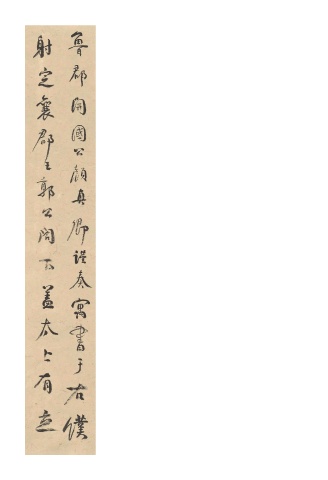 魯郡開國公顔真卿謹奏寓書于右僕
射定襄郡王郭公閤下蓋太上有立